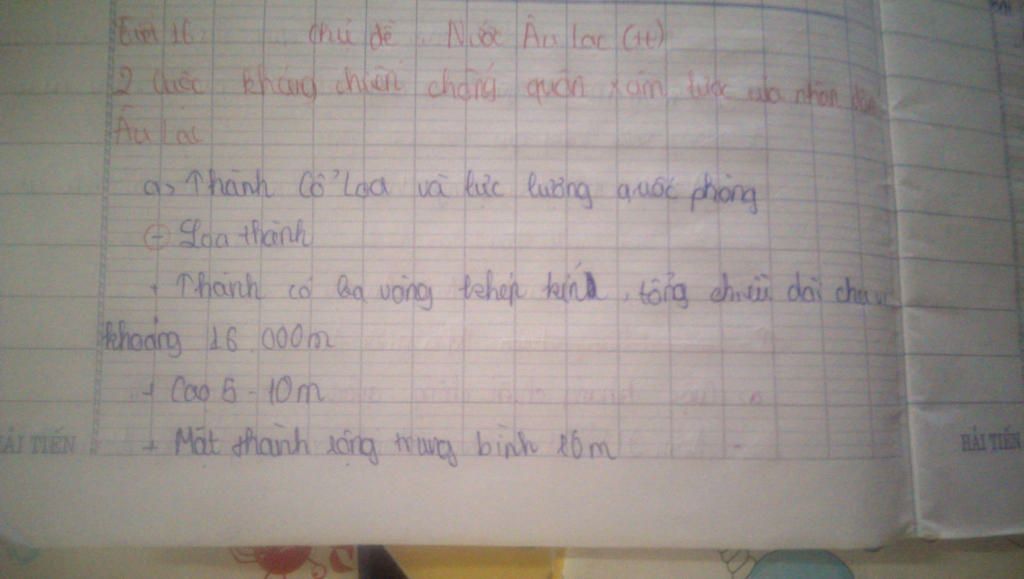 Tiết 16: Chủ đề Nước Âu Lạc (tt)
2 Cuộc kháng chiến chống quân xâm lược của nhân dân
Âu Lạc
a> Thành Cổ Loa và lực lượng quốc phòng
- Loa thành
+ Thành có ba vòng khép kín, tổng chiều dài chu vi
khoảng 16.000m
+ Cao 5-10m
HẢI TIẾN + Mặt thành rộng trung bình 10m HẢI TIẾN